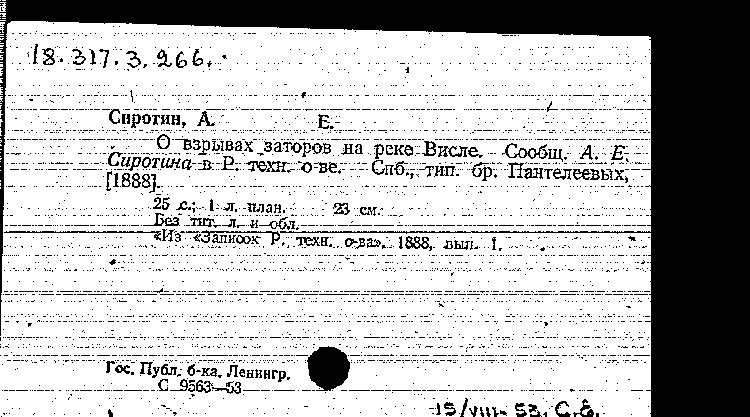 18.317.3.266.
Сиротин, А. Е.
О взрывах заторов на реке Висле. Сообщ. А. Е.
Сиротина в Р. техн. о-ве. Спб., тип. бр. Пантелеевых,
[1888].
25 с.; 1 л. план. 23 см.
Без тит. л. и обл.
«Из «Записок Р. техн. о-ва». 1888, вып. 1.
Гос. Публ. б-ка. Ленингр.
С 9563—53
15/VIII- 53. С.б.